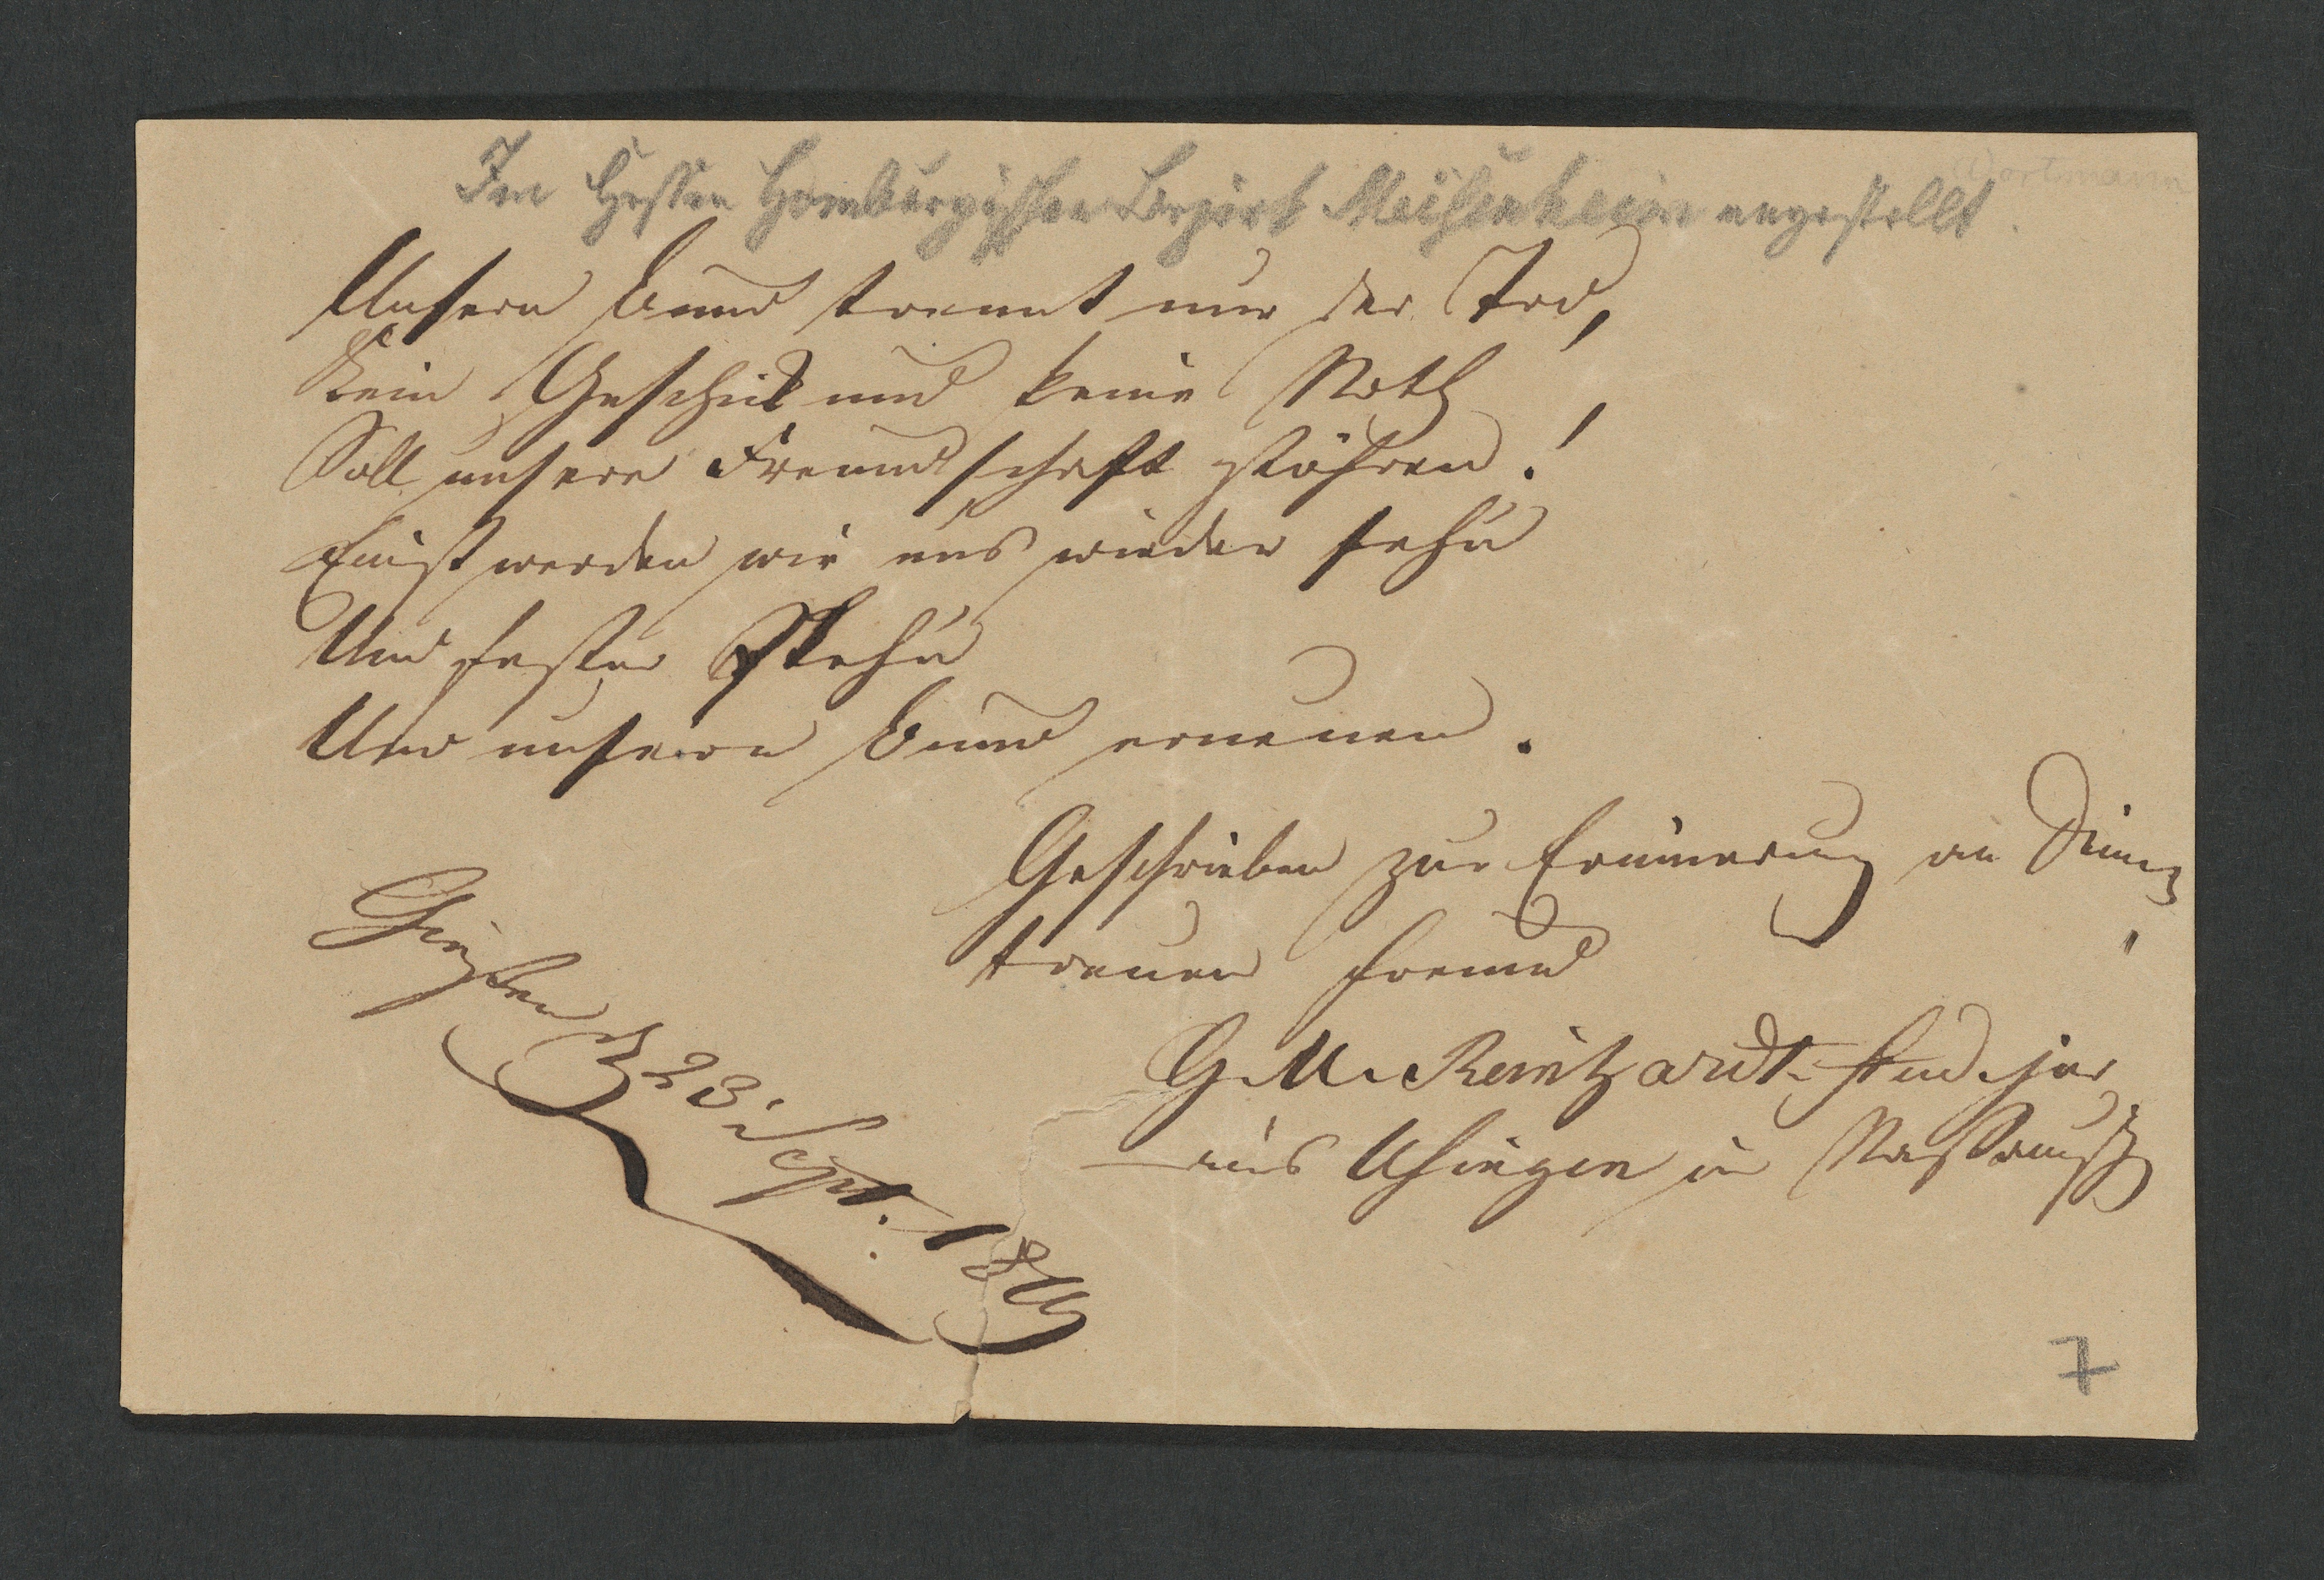 Im Hessen Homburgischen Bezirk Meisenheim angestellt.
Unsern Bund trennt nur der Tod,
Kein Geschick und keine Noth
Soll unsere Freundschaft stöhren!
Einst werden wir uns wieder sehn
Und fester stehn
Und unsern Bund erneuen.
Geschrieben zur Erinnerung an Deinen
treuen Freund
G. M. Reinhardt. stud. jur.
aus Usingen in Nassau
Gießen 23. Sept. 18
7